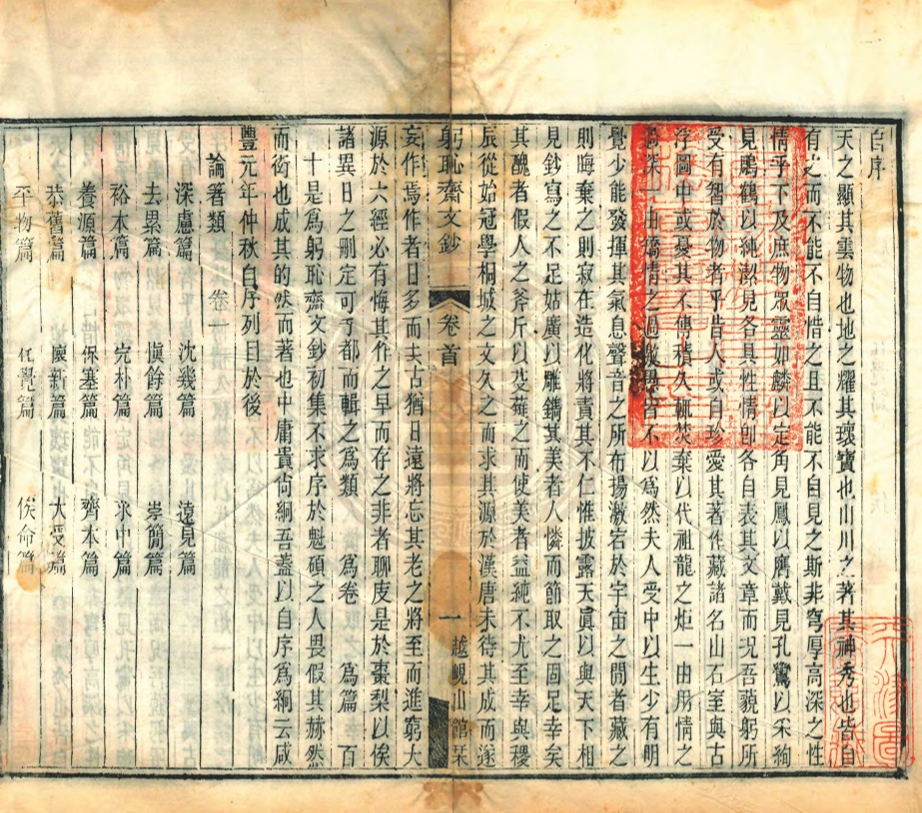 自序
天之顯其雲物也地之耀其瓌寶也山川之著其神秀也皆自
有之而不能不自惜之且不能不自見之斯非穹厚高深之性
情乎下及庶物眾靈如麟以定角見鳳以膺戴見孔鸞以采絢
見鵰鶴以純潔見各具性情卽各自表其文章而況吾藐躬所
受有智於物者乎昔人或自珍愛其著作藏諸名山石室與古
浮圖中或憂其不傳積久輒焚棄以代祖龍之炬一由用情之
過深一由矯情之過激愚皆不以爲然夫人受中以生少有明
覺少能發揮其氣息聲音之所布揚澈宕於宇宙之閒者藏之
則晦棄之則寂在造化將責其不仁惟披露天眞以與天下相
見鈔寫之不足姑廣以雕鐫其美者人憐而節取之固足幸矣
其醜者假人之斧斤以芟薙之而使美者益純不尤至幸與稷
辰從始冠學桐城之文久之而求其源於漢唐未待其成而遂
躬恥齋文鈔
卷首
一
越峴山館栞
妄作焉作者日多而去古猶日遠將忘其老之將至而進窮大
源於六經必有悔其作之早而存之非者聊庋是於棗梨以俟
諸異日之刪定可乎都而輯之爲類 爲卷 爲篇 百
十是爲躬恥齋文鈔初集不求序於魁碩之人畏假其赫然
而衒也成其的然而著也中庸貴尙絅吾蓋以自序爲絅云咸
豐元年仲秋自序列目於後
論箸類 卷一
深慮篇 沈幾篇 遠見篇
去累篇 愼餘篇 崇簡篇
裕本篇 完朴篇 求中篇
養源篇 保塞篇 齊本篇
恭舊篇 懷新篇 大受篇
平物篇 任覺篇 俟命篇